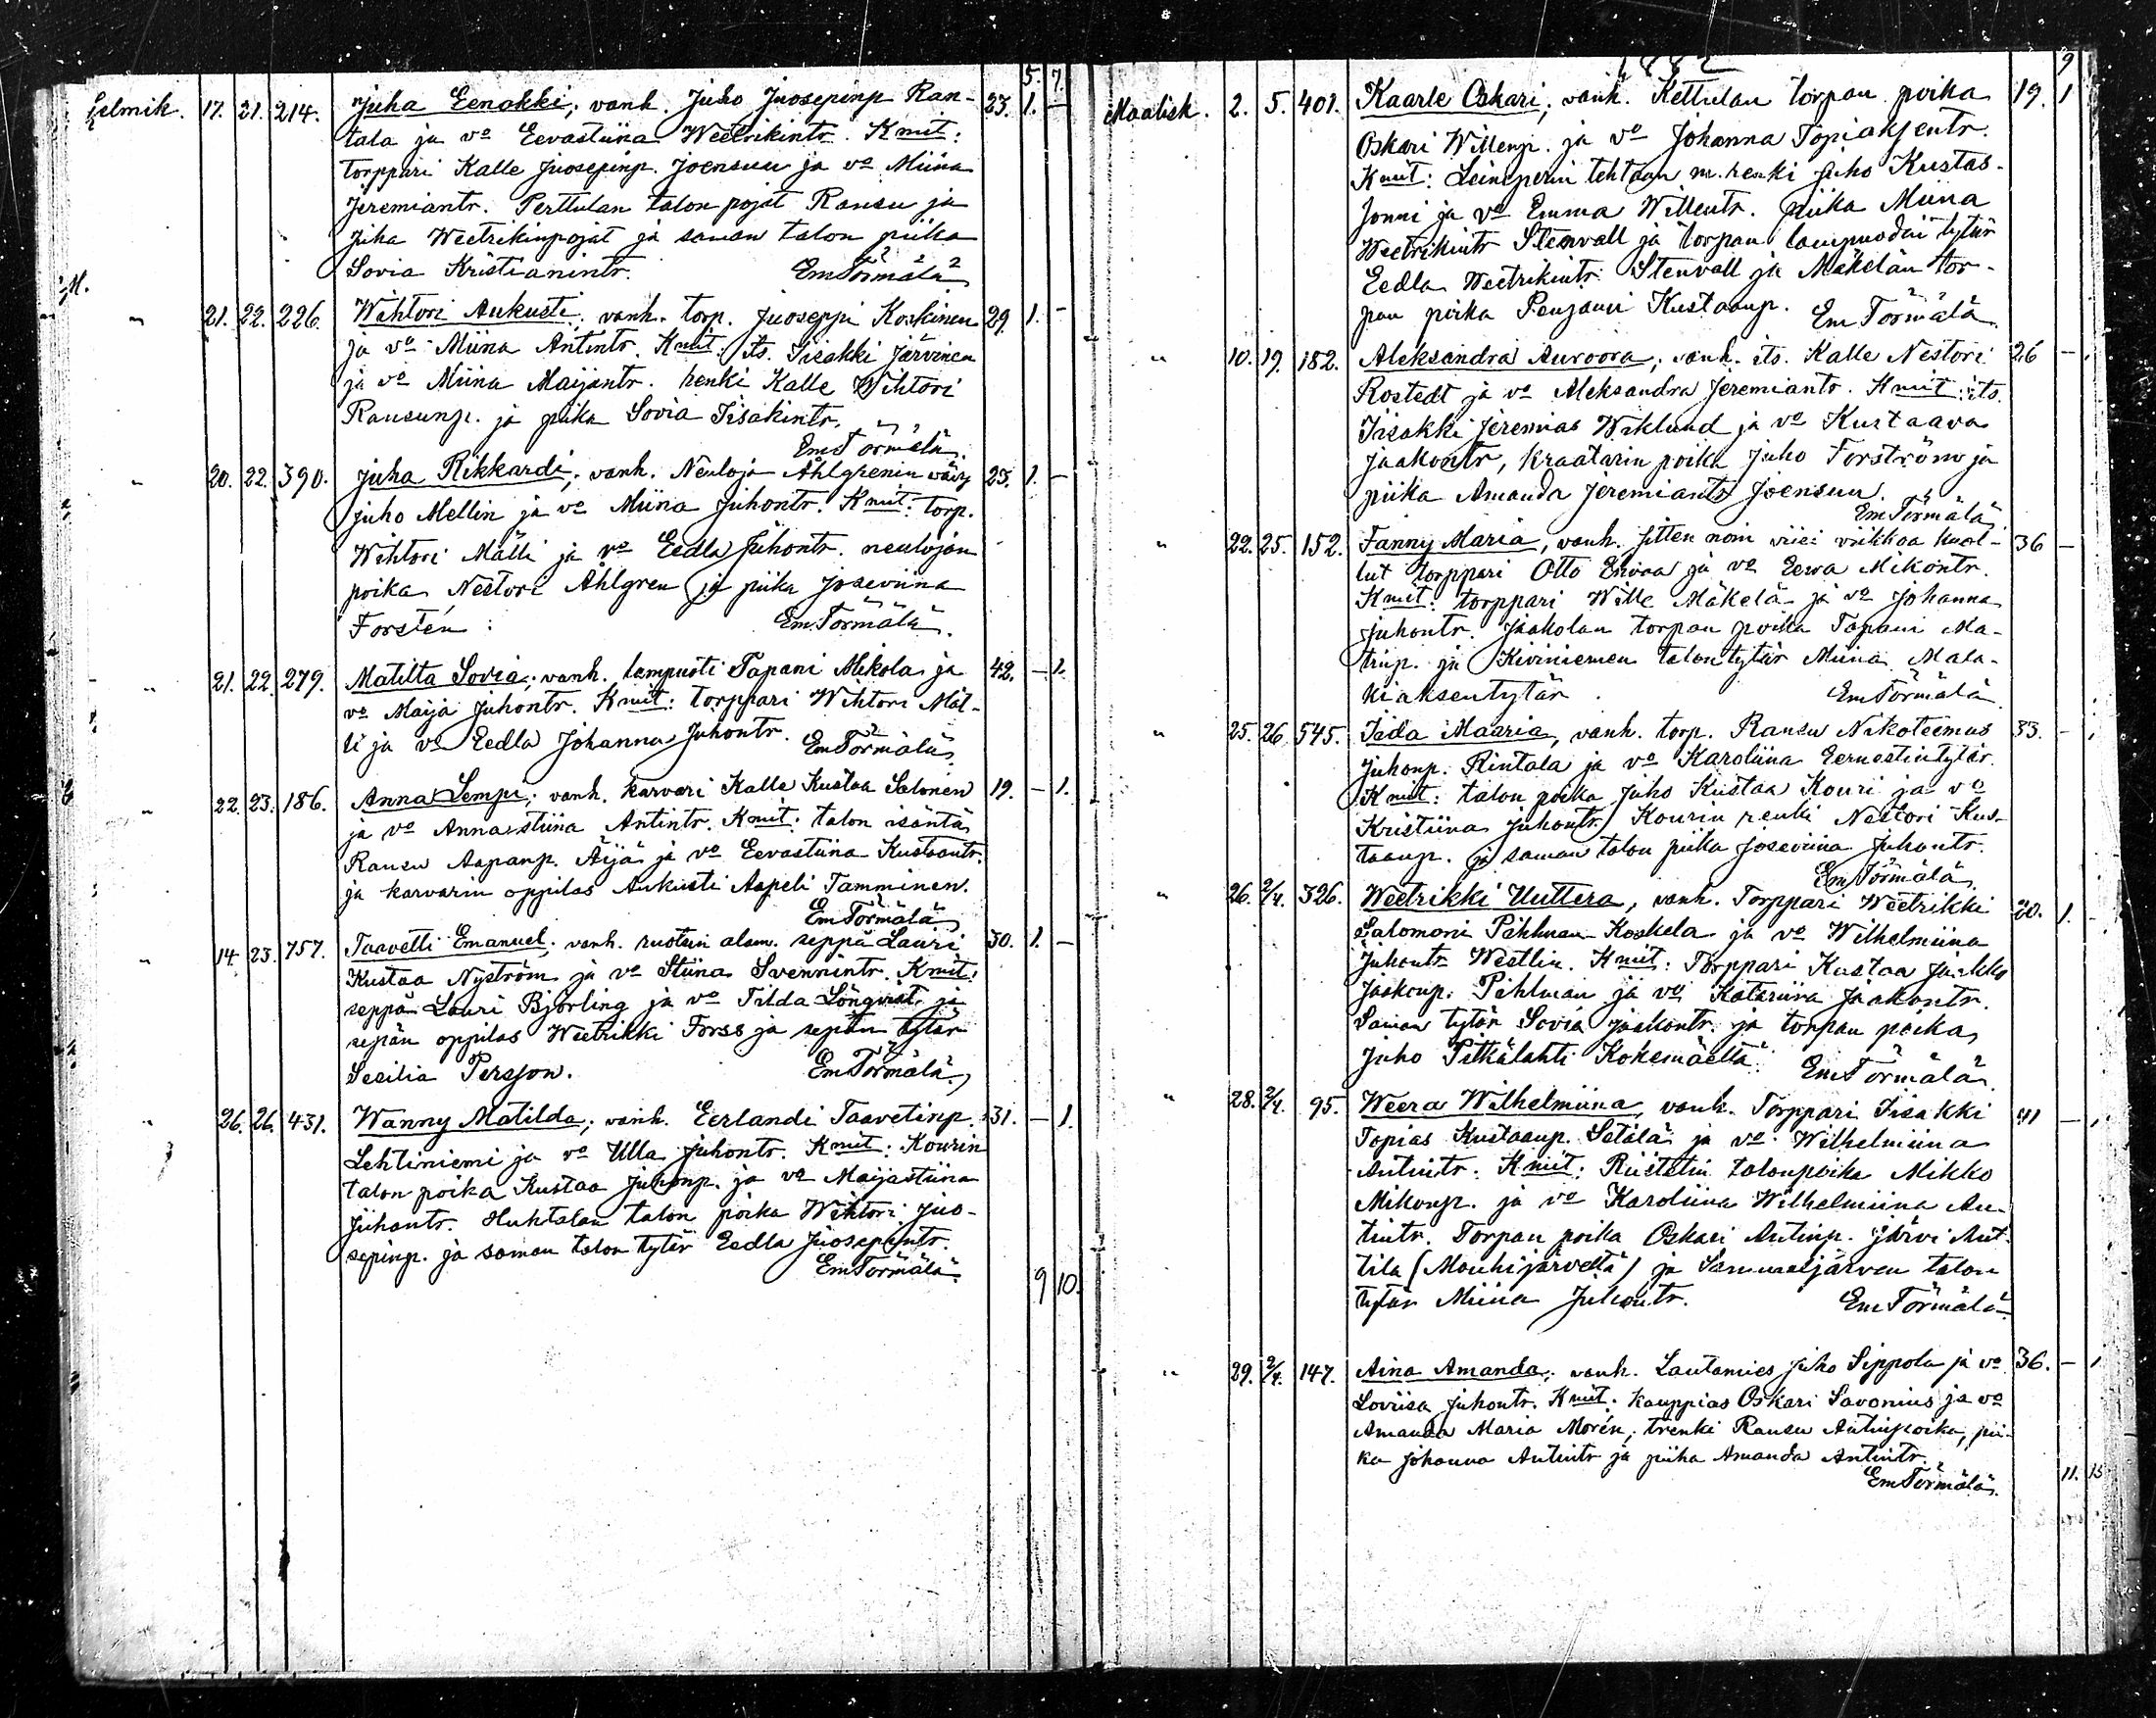 5. 7
Helmik. 17. 21. 214. Juha Eenokki; vanh. Juho Juosepinp Ran- 23. 1. —
tala ja vo Eevastiina Weetrikintr. Kmit:
torppari Kalle Juosepinp. Joensuu ja vo Miina
Jeremiantr. Perttulan talon pojat Ransu ja
Juha Weetrikinpojat ja saman talon piika
Sovia Kristianintr. Em Törmälä
M.
" 21. 22. 226. Wihtori Aukusti; vanh. torp. Juoseppi Koskinen 29. 1. -
ja vo Miina Antintr. Kmit: its. Iisakki Järvinen
ja vo Miina Maijantr. henki Kalle Wihtori
Ransunp. ja piika Sovia Iisakintr.
Em Törmälä.
" 20. 22. 390. Juha Rikkardi; vanh. Neuloja Åhlgrenin vävy 23. 1. —
Juho Mellin ja vo Miina Juhontr. Kmit: torp.
Wihtori Mälli ja vo Eedla Juhontr. neulojan
poika Nestori Åhlgren ja piika Joseviina
Forstén: Em Törmälä.
" 21. 22. 279. Matilta Sovia; vanh. lampuoti Tapani Mikola ja 42. — 1.
vo Maija Juhontr. Kmit: torppari Wihtori Mäl-
li ja vo Eedla Johanna Juhontr. Em Törmälä
" 22. 23. 186. Anna Lempi; vanh. karvari Kalle Kustaa Salonen 19. — 1.
ja vo Annastiina Antintr. Kmit: talon isäntä
Ransu Aapanp. Äijä ja vo Eevastiina Kustaantr.
ja karvarin oppilas Aukusti Aapeli Tamminen.
Em Törmälä
" 14. 23. 757. Taavetti Emanuel; vanh. ruotsin alam. seppä Lauri 30. 1. —
Kustaa Nyström ja vo Stiina Svennintr. Kmit:
seppä Lauri Björling ja vo Tilda Lönqvist ja
sepän oppilas Weetrikki Forss ja sepän tytär
Sesilia Persson. Em Törmälä.
" 26. 26. 431. Wanny Matilda; vanh. Eerlandi Taavetinp. 31. — 1.
Lehtiniemi ja vo Ulla Juhontr. Kmit: Kourin
talon poika Kustaa Juhonp. ja vo Maijastiina
Juhontr. Huhtalan talon poika Wihtori Juo-
sepinp. ja saman talon tytär Eedla Juosepintr.
Em Törmälä.
9 10.
1882
9
Maalisk. 2. 5. 401. Kaarle Oskari; vanh. Kettulan torpan poika 19. 1
Oskari Willenp. ja vo Johanna Topiaksentr.
Kmit: Leineperin tehtaan m. renki Juho Kustas-
Jonni ja vo Emma Willentr. piika Miina
Weetrikintr Stenvall ja torpan lampuodin tytär
Eedla Weetrikintr. Stenvall ja Mäkelän tor-
pan poika Penjami Kustaanp. Em Törmälä.
" 10. 19. 182. Aleksandra Auroora; vanh. its. Kalle Nestori 26 —
Rostedt ja vo Aleksandra Jeremiantr. Kmit: its.
Iisakki Jeremias Wiklund ja vo Kustaava
Jaakontr, kraatarin poika Juho Forström ja
piika Amanda Jeremiantr Joensuu.
Em Törmälä
" 22. 25. 152. Fanny Maria, vanh. sitten noin viisi viikkoa kuol- 36 —
lut torppari Otto ja vo Eewa Mikontr.
Kmit: torppari Wille Mäkelä ja vo Johanna
Juhontr. Jaakolan torpan poika Tapani Ma-
tinp. ja Kiviniemen talon tytär Miina Mala-
kiaksentytär. Em Törmälä
" 25. 26. 545. Iida Maaria, vanh. torp. Ransu Nikoteemus 33. -
Juhonp. Rintala ja vo Karoliina Eernestintytär.
Kmit: talon poika Juho Kustaa Kouri ja vo
Kristiina Juhontr. Kourin renki Nestori Kus-
taanp. ja saman talon piika Joseviina Juhontr.
Em Törmälä.
" 26. 2/4. 326. Weetrikki Uuttera, vanh. Torppari Weetrikki 20. 1. -
Salomoni Pihlman Koskela ja vo Wilhelmiina
Juhontr Westlin. Kmit: Torppari Kustaa Jaakko
Jaakonp. Pihlman ja vo Katariina Jaakontr.
Saman tytär Sovia Jaakontr. ja torpan poika
Juho Pitkälahti Kokemäeltä. Em Törmälä.
" 28. 2/4. 95. Weera Wilhelmiina, vanh. Torppari Iisakki 41 —
Topias Kustaanp. Setälä ja vo Wilhelmiina
Antintr. Kmit: Riistetin talonpoika Mikko
Mikonp. ja vo Karoliina Wilhelmiina An-
tintr. Torpan poika Oskari Antinp. Järvi Ant-
tila (Mouhijärveltä) ja Sammaljärven talon
tytär Miina Juhontr. Em Törmälä.
" 29. 2/4. 147. Aina Amanda; vanh. Lautamies Juho Sippola ja vo 36. — 1
Loviisa Juhontr. Kmit: Kauppias Oskari Savonius ja vo
Amanda Maria Morén; trenki Ransu Antinpoika, pii-
ka Johanna Antintr ja piika Amanda Antintr.
Em Törmälä.
11. 13